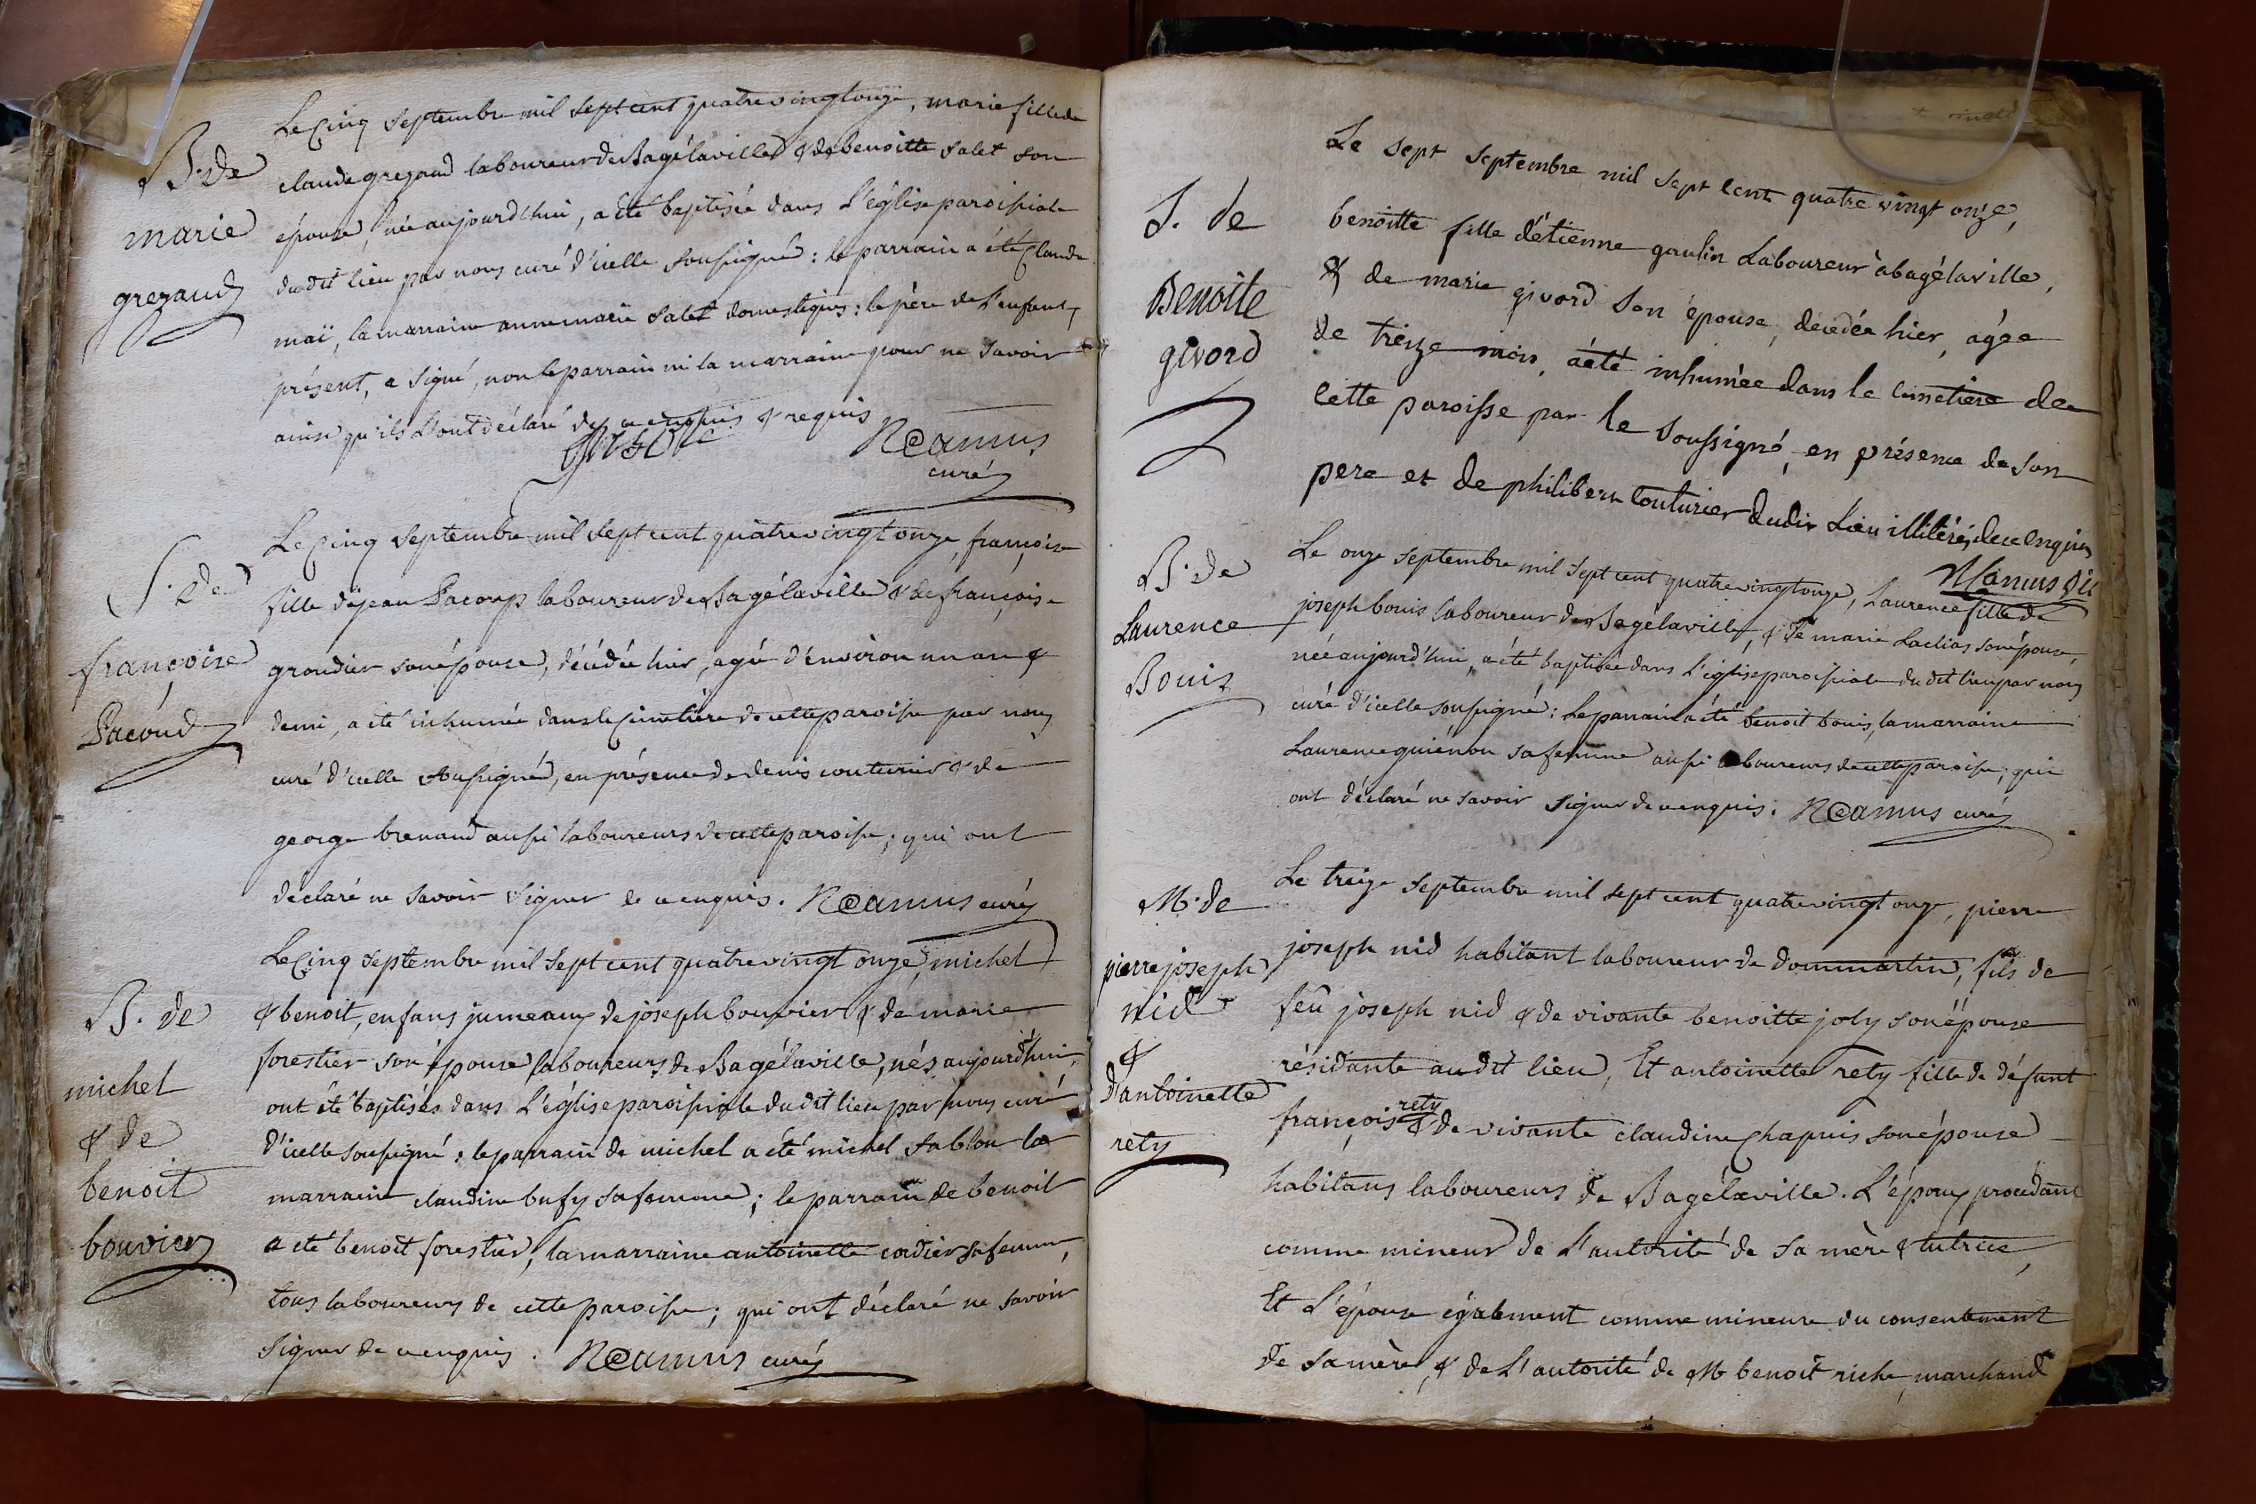 B. de
marie
grezaud
Le cinq septembre mil sept cent quatrevingt onze, marie fille de
claude grezaud laboureur de Bagélaville & de benoitte salet son
épouse, née aujourd'hui, a été baptisée dans l'église paroissiale
dudit lieu par nous curé d'icelle soussigné : le parrain a été claude
maï, la marraine anne marie salet domestiques : le père de l'enfant,
présent, a signé, non le parrain ni la marraine pour ne savoir
ainsi qu'ils l'ont déclaré de ce enquis & requis
Camus
curé
S. de
françoise
Pacoud
Le cinq septembre mil sept cent quatrevingt onze, françoise
fille de jean Pacoup laboureur de Bagélaville & de françoise
grondier son épouse, décédée hier, agée d'environ un an &
demi, a été inhumée dans le cimetière de cette paroisse par nous
curé d'icelle soussigné, en présence de denis couturier & de
george brenaud aussi laboureurs de cette paroisse ; qui ont
déclaré ne savoir signer de ce enquis. Camus curé
B. de
michel
& de
benoit
bouvier
Le cinq septembre mil sept cent quatrevingt onze, michel
& benoit, enfans jumeaux de joseph bouvier & de marie
forestier son épouse laboureurs de Bagélaville, nés aujourd'hui,
ont été baptisés dans l'église paroissiale dudit lieu par nous curé
d'icelle soussigné : le parrain de michel a été michel sablon la
marraine claudine bufy sa femme ; le parrain de benoit
a été benoit forestier, la marraine antoinette cordier sa femme,
tous laboureurs de cette paroisse ; qui ont déclaré ne savoir
signer de ce enquis. Camus curé
S. de
Benoite
givord
Le sept septembre mil sept cent quatre vingt onze,
benoitte fille d'étienne gaulin Laboureur à bagélaville,
& de marie givord son épouse, décedée hier, agée
de treize mois, a été inhumée dans le cimetiere de
cette paroisse par le soussigné, en présence de son
pere et de philibert couturier dudit Lieu illitérés de ce enquis
Camus
B. de
Laurence
Bouis
Le onze septembre mil sept cent quatrevingt onze, Laurence fille de
joseph bouis laboureur de Bagélaville, & de marie Laclias son épouse,
née aujourd'hui, a été baptisée dans l'église paroissiale dudit lieu par nous
curé d'icelle soussigné : le parrain a été benoit bouis, la marraine
Laurence guiénon sa femme aussi laboureurs de cette paroisse ; qui
ont déclaré ne savoir signer de ce enquis. Camus curé
M. de
pierre joseph
nid
&
d'antoinette
rety
Le treize septembre mil sept cent quatrevingt onze, pierre
joseph nid habitant laboureur de dommartin, fils de
feû joseph nid & de vivante benoitte joly son épouse
résidante audit lieu, Et antoinette rety fille de défunt
françois rety & de vivante claudine chapuis son épouse
habitans laboureurs de Bagélaville. L'époux procédant
comme mineur de l'autorité de sa mère & tutrice,
Et l'épouse également comme mineure du consentement
de sa mère, & de l'autorité de M benoit riche, marchand